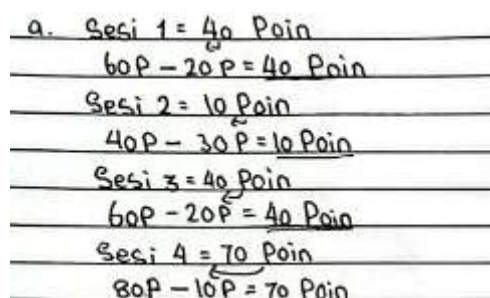 a. Sesi 1 = 40 Poin
60P - 20P = 40 Poin
Sesi 2 = 10 Poin
40P - 30P = 10 Poin
Sesi 3 = 40 Poin
60P - 20P = 40 Poin
Sesi 4 = 70 Poin
80P - 10P = 70 Poin